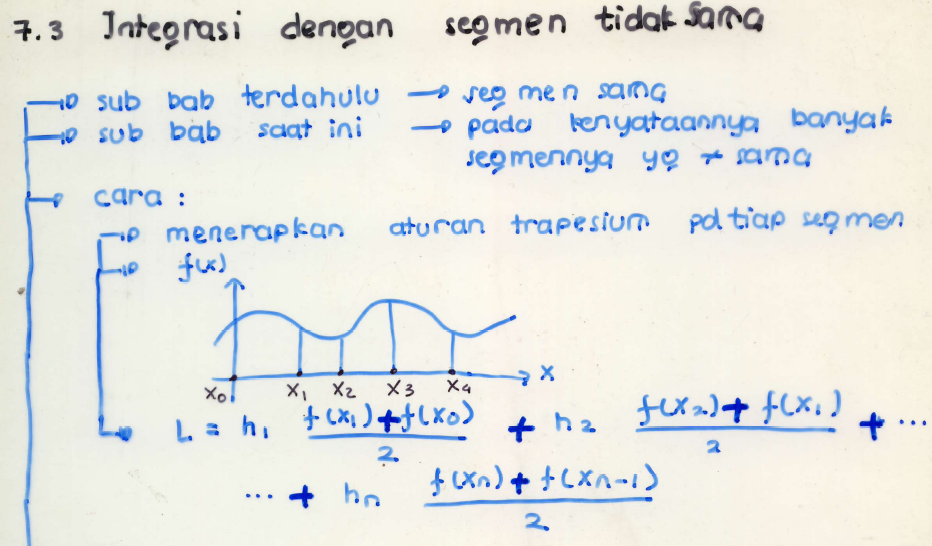 7.3 Integrasi dengan segmen tidak sama
sub bab terdahulu → segmen sama
sub bab saat ini → pada kenyataannya banyak
segmennya yg ≠ sama
cara :
menerapkan aturan trapesium pd tiap segmen
f(x)
x
x₀ x₁ x₂ x₃ x₄
L = h₁ f(x₁)+f(x₀)/2 + h₂ f(x₂)+f(x₁)/2 + ...
... + hₙ f(xₙ)+f(xₙ₋₁)/2